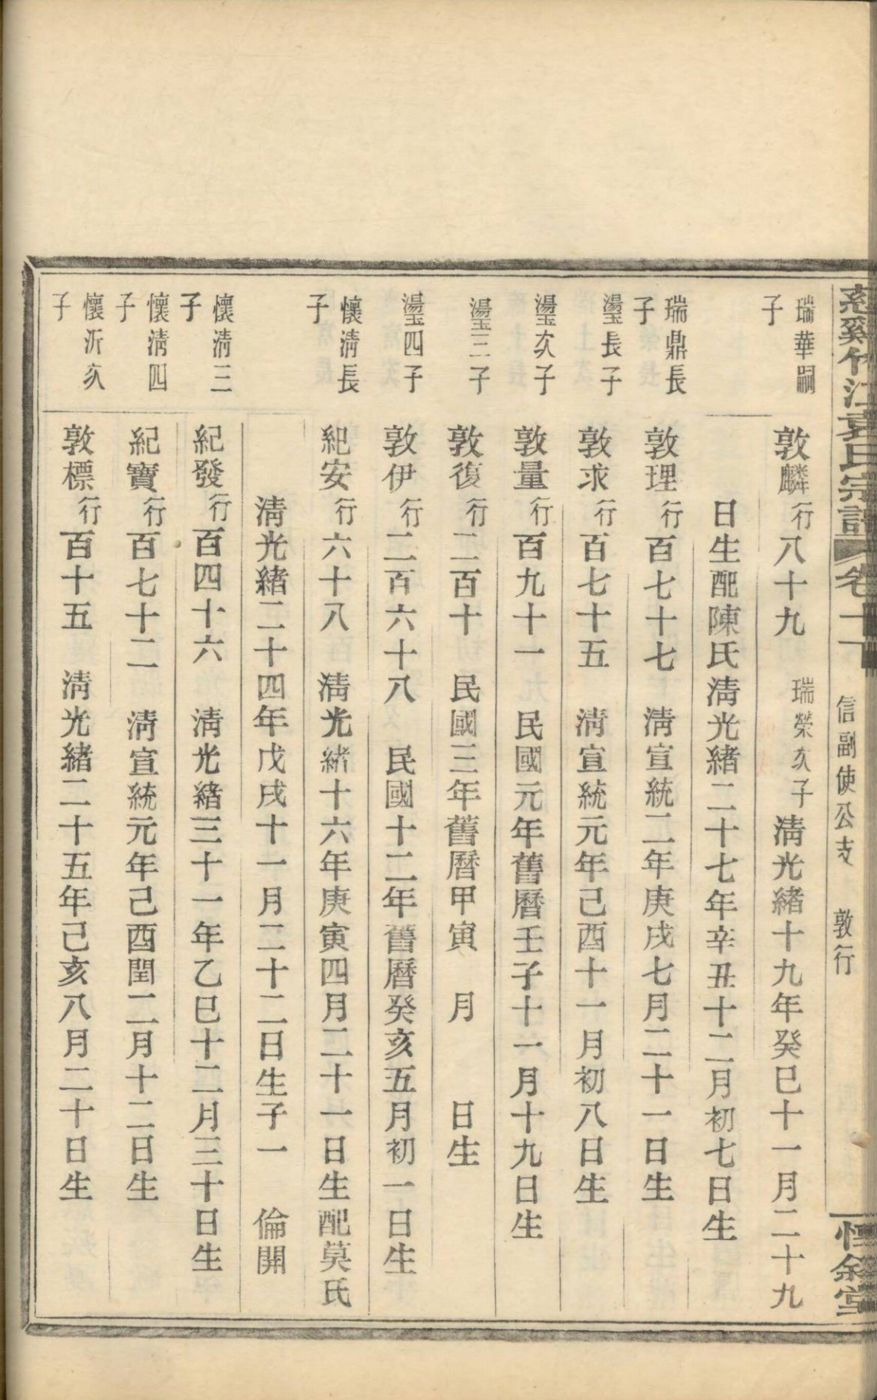 慈谿竹江袁氏宗譜 卷十 信副使公支 敦行 一 惇敘堂
瑞華嗣子 敦麟行八十九 瑞榮次子 淸光緒十九年癸巳十一月二十九
日生配陳氏淸光緒二十七年辛丑十二月初七日生
瑞鼎長子 敦理行百七十七 淸宣統二年庚戌七月二十一日生
璗長子 敦求行百七十五 淸宣統元年己酉十一月初八日生
璗次子 敦量行百九十一 民國元年舊曆壬子十一月十九日生
璗三子 敦復行二百十 民國三年舊曆甲寅 月 日生
璗四子 敦伊行二百六十八 民國十二年舊曆癸亥五月初一日生
懷淸長子 紀安行六十八 淸光緒十六年庚寅四月二十一日生配莫氏
淸光緒二十四年戊戌十一月二十二日生子一 倫開
懷淸三子 紀發行百四十六 淸光緒三十一年乙巳十二月三十日生
懷淸四子 紀寶行百七十二 淸宣統元年己酉閏二月十二日生
懷沂次子 敦標行百十五 淸光緒二十五年己亥八月二十日生